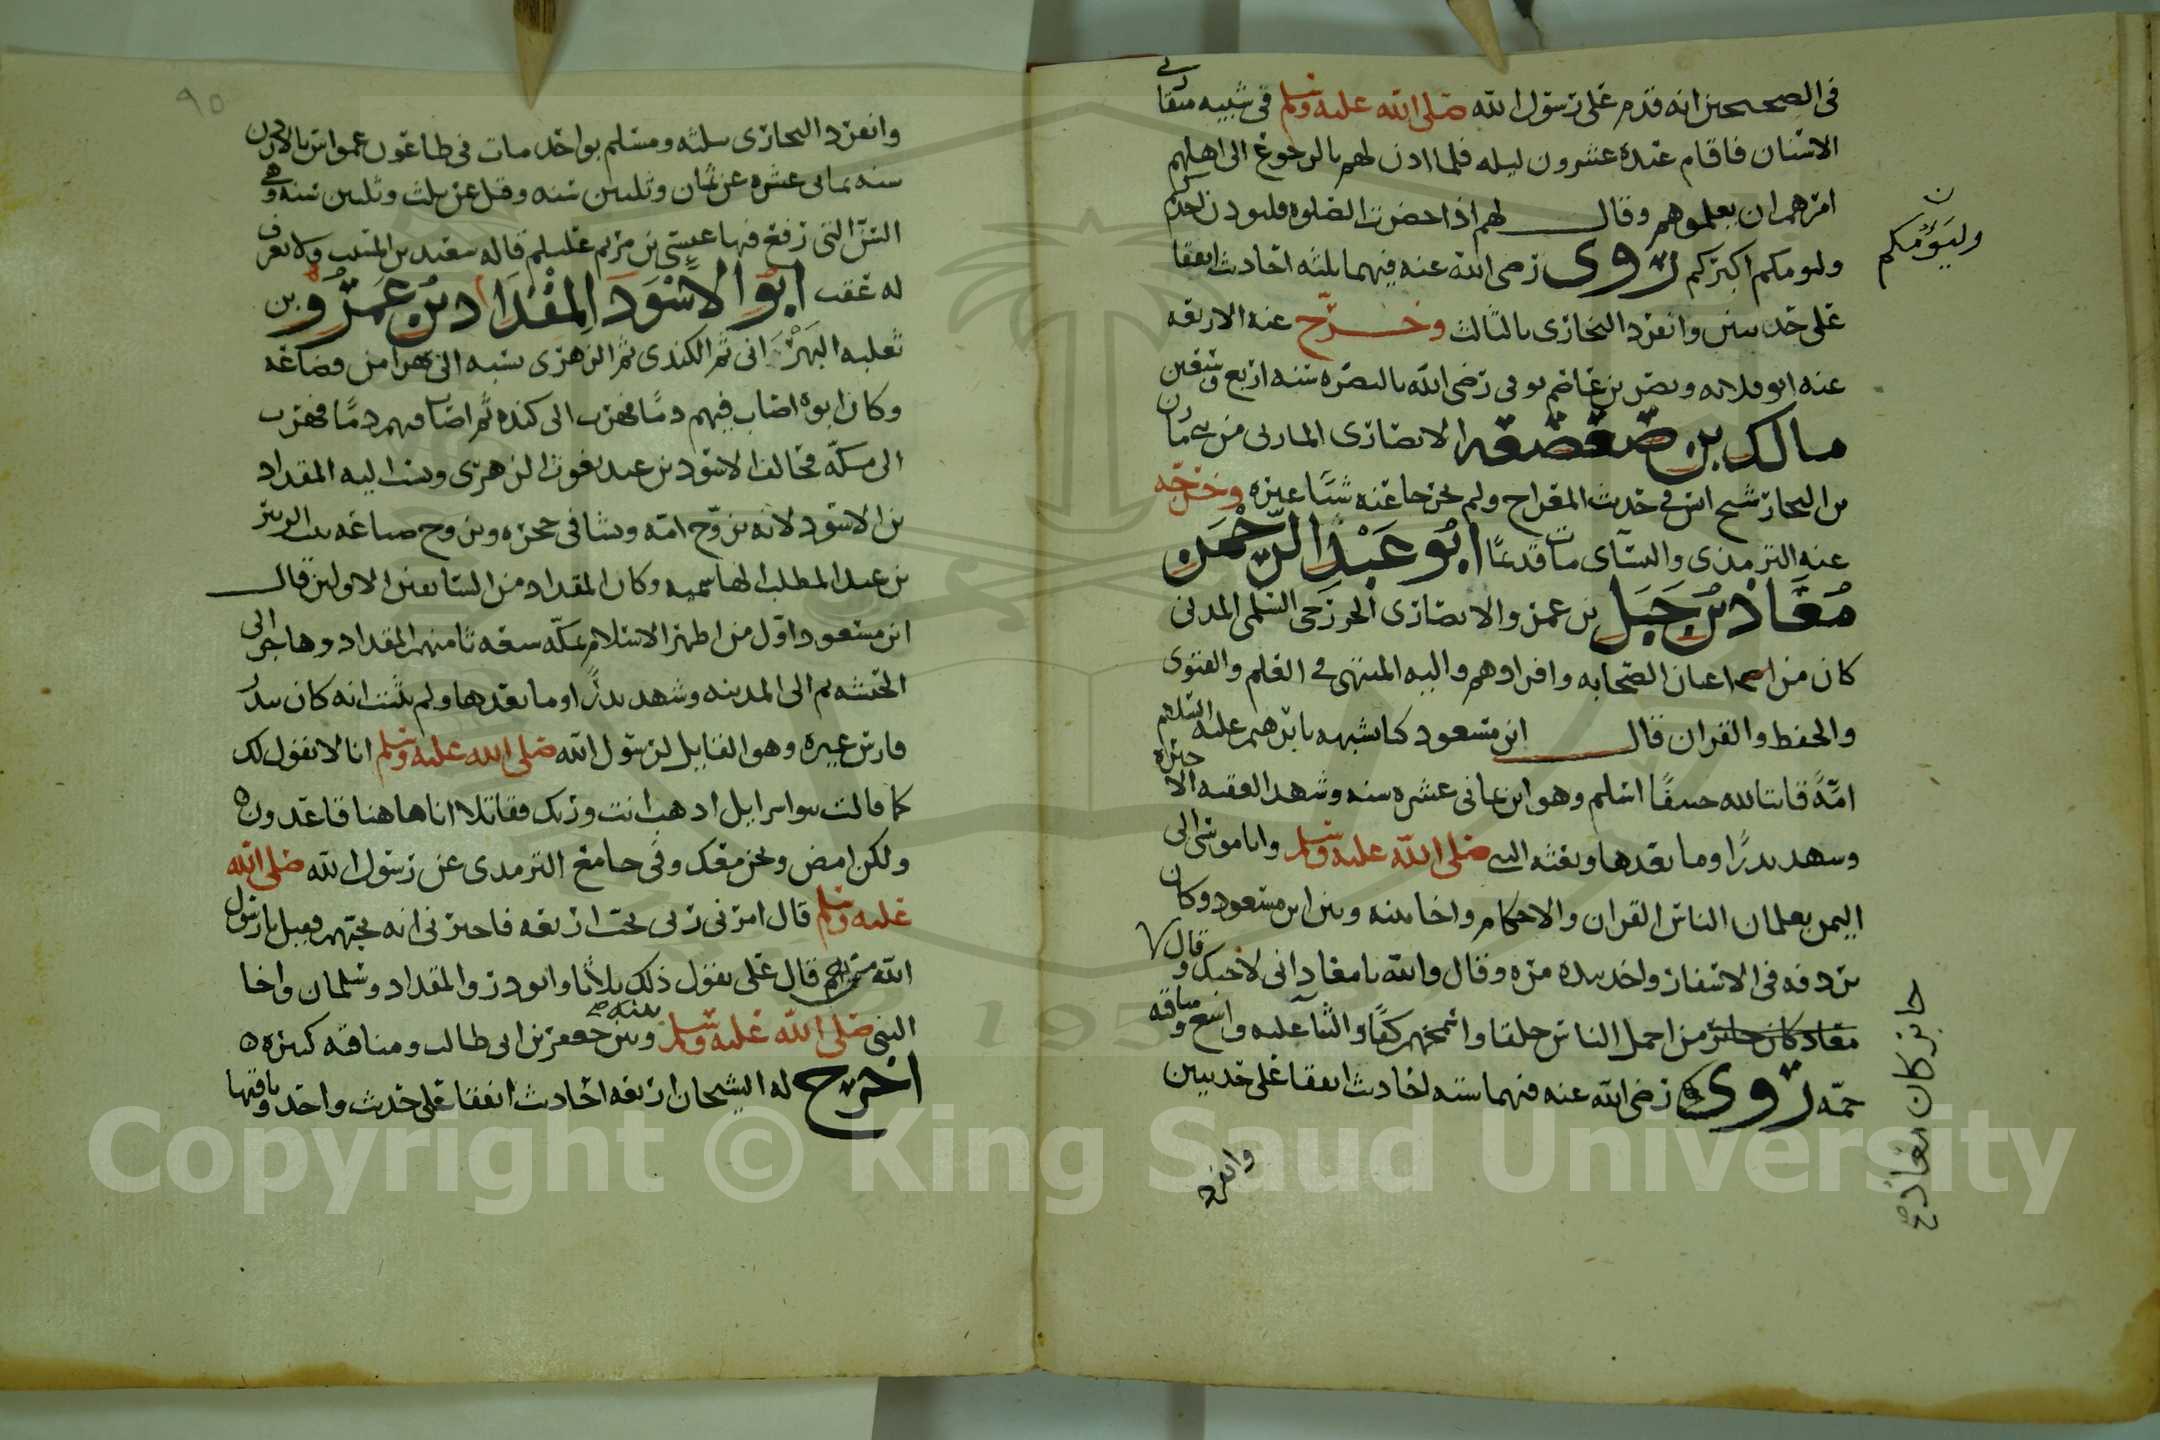 في الصحيحين انه قدم على رسول الله صلى الله عليه وسلم في شبيبه متقاربي
الاسنان فاقام عنده عشرون ليله فلما اذن لهم بالرجوع الى اهليهم
امرهم ان يعلموهم وقال لهم اذا حضرت الصلوه فليوذن احدكم
وليومكم اكبركم روى رضي الله عنه فيهما ثلثه احاديث اتفقا
وليؤمكم ن
على حديثين وانفرد البخارى بالثالث وخرج عنه الاربعه
عنه ابو قلابه ونصر بن عاصم توفى رضي الله بالبصره سنه اربع وتسعين
مالك بن صعصعه الانصارى المازنى من بنى مازن
بن النجار شيخ انس في حديث المعراج ولم يخرجا عنه شيئا غيره وخرج
عنه الترمذى والنسآى مات قديما ابو عبد الرحمن
معاذ بن جبل بن عمرو الانصارى الخزرجى السلمى المدنى
كان من اعيان الصحابه وافرادهم واليه المنتهى في العلم والفتوى
والحفظ والقران قال ابن مسعود كنا نشبهه بابرهيم عليه السلام
امة قانتا لله حنيفا اسلم وهو ابن ثمانى عشره سنه وشهد العقبه الاخيره
وشهد بدرا وما بعدها وبعثه النبى صلى الله عليه وسلم وابا موسى الى
اليمن يعلمان الناس القران والاحكام واخا بينه وبين ابن مسعود وكان
يردفه في الاسفار واخذ بيده مره وقال والله يا معاذ انى لاحبك وقال
معاذ كان من اجمل الناس خلقا واسمحهم كفا والثنآ عليه واسع ومناقبه
جابر كان معاذ صح
جمه روى رضي الله عنه فيهما سته احاديث اتفقا على حديثين
وانفرد
٩٥
وانفرد البخارى بثلثه ومسلم بواحد مات في طاعون عمواس بالاردن
سنه ثمانى عشره عن ثمان وثلثين سنه وقيل عن ثلث وثلثين سنه وهى
السن التى رفع فيها عيسى بن مريم عليلم قاله سعيد بن المسيب ولا يعرف
له عقب ابو الاسود المقداد بن عمرو بن
ثعلبه البهرانى ثم الكندى ثم الزهرى نسبه الى بهرا من قضاعه
وكان ابوه اصاب فيهم دما فهرب الى كنده ثم اصاب فيهم دما فهرب
الى مكه فحالف الاسود بن عبد يغوث الزهرى ونسب اليه المقداد
بن الاسود لانه تزوج امه ونشا في حجره وتزوج ضباعه بنت الزبير
بن عبد المطلب الهاشميه وكان المقداد من السابقين الاولين قال
ابن مسعود اول من اظهر الاسلام بمكه سبعه ثامنهم المقداد وهاجر الى
الحبشه ثم الى المدينه وشهد بدرا وما بعدها ولم يثبت انه كان ببدر
فارس غيره وهو القايل لرسول الله صلى الله عليه وسلم انا لا نقول لك
كما قالت بنو اسرايل اذهب انت وربك فقاتلا انا هاهنا قاعدون
ولكن امض ونحن معك وفى جامع الترمذى عن رسول الله صلى الله
عليه وسلم قال امرنى ربى بحب اربعه فاخبرنى انه يحبهم فقيل يا رسول
الله سمهم قال على يقول ذلك ثلاثا وابو ذر والمقداد وسلمان واخا
النبى صلى الله عليه وسلم بينه وبين جعفر بن ابى طالب ومناقبه كثيره
اخرج له الشيخان اربعه احاديث اتفقا على حديث واحد وباقيها
Copyright © King Saud University
195